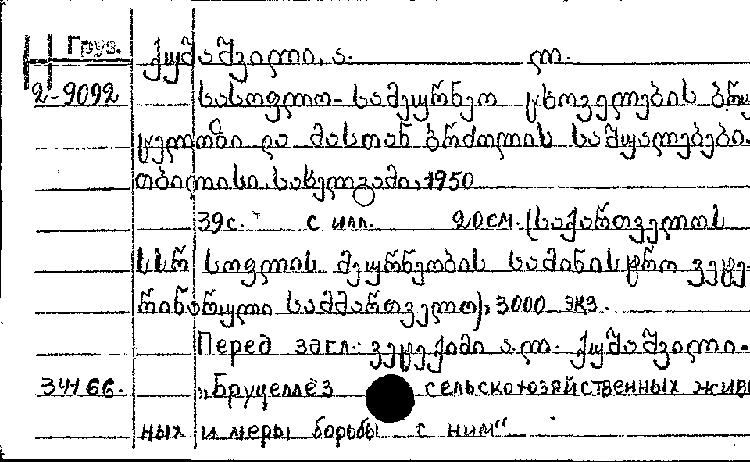 Груз. ქუმაშვილი, ა. ლ.
2-9092 სასოფლო-სამეურნეო ცხოველების ბრუ
ცელოზი და მასთან ბრძოლის საშუალებები.
თბილისი, სახელგამი, 1950
39с. с илл. 20см. (საქართველოს
სსრ სოფლის მეურნეობის სამინისტრო ვეტე-
რინარული სამმართველო), 3000 экз.
Перед загл. ვეტექიმი ა.ლ. ქუმაშვილი.
34166. „Бруцеллёз сельскохозяйственных живо
ных и меры борьбы с ним“